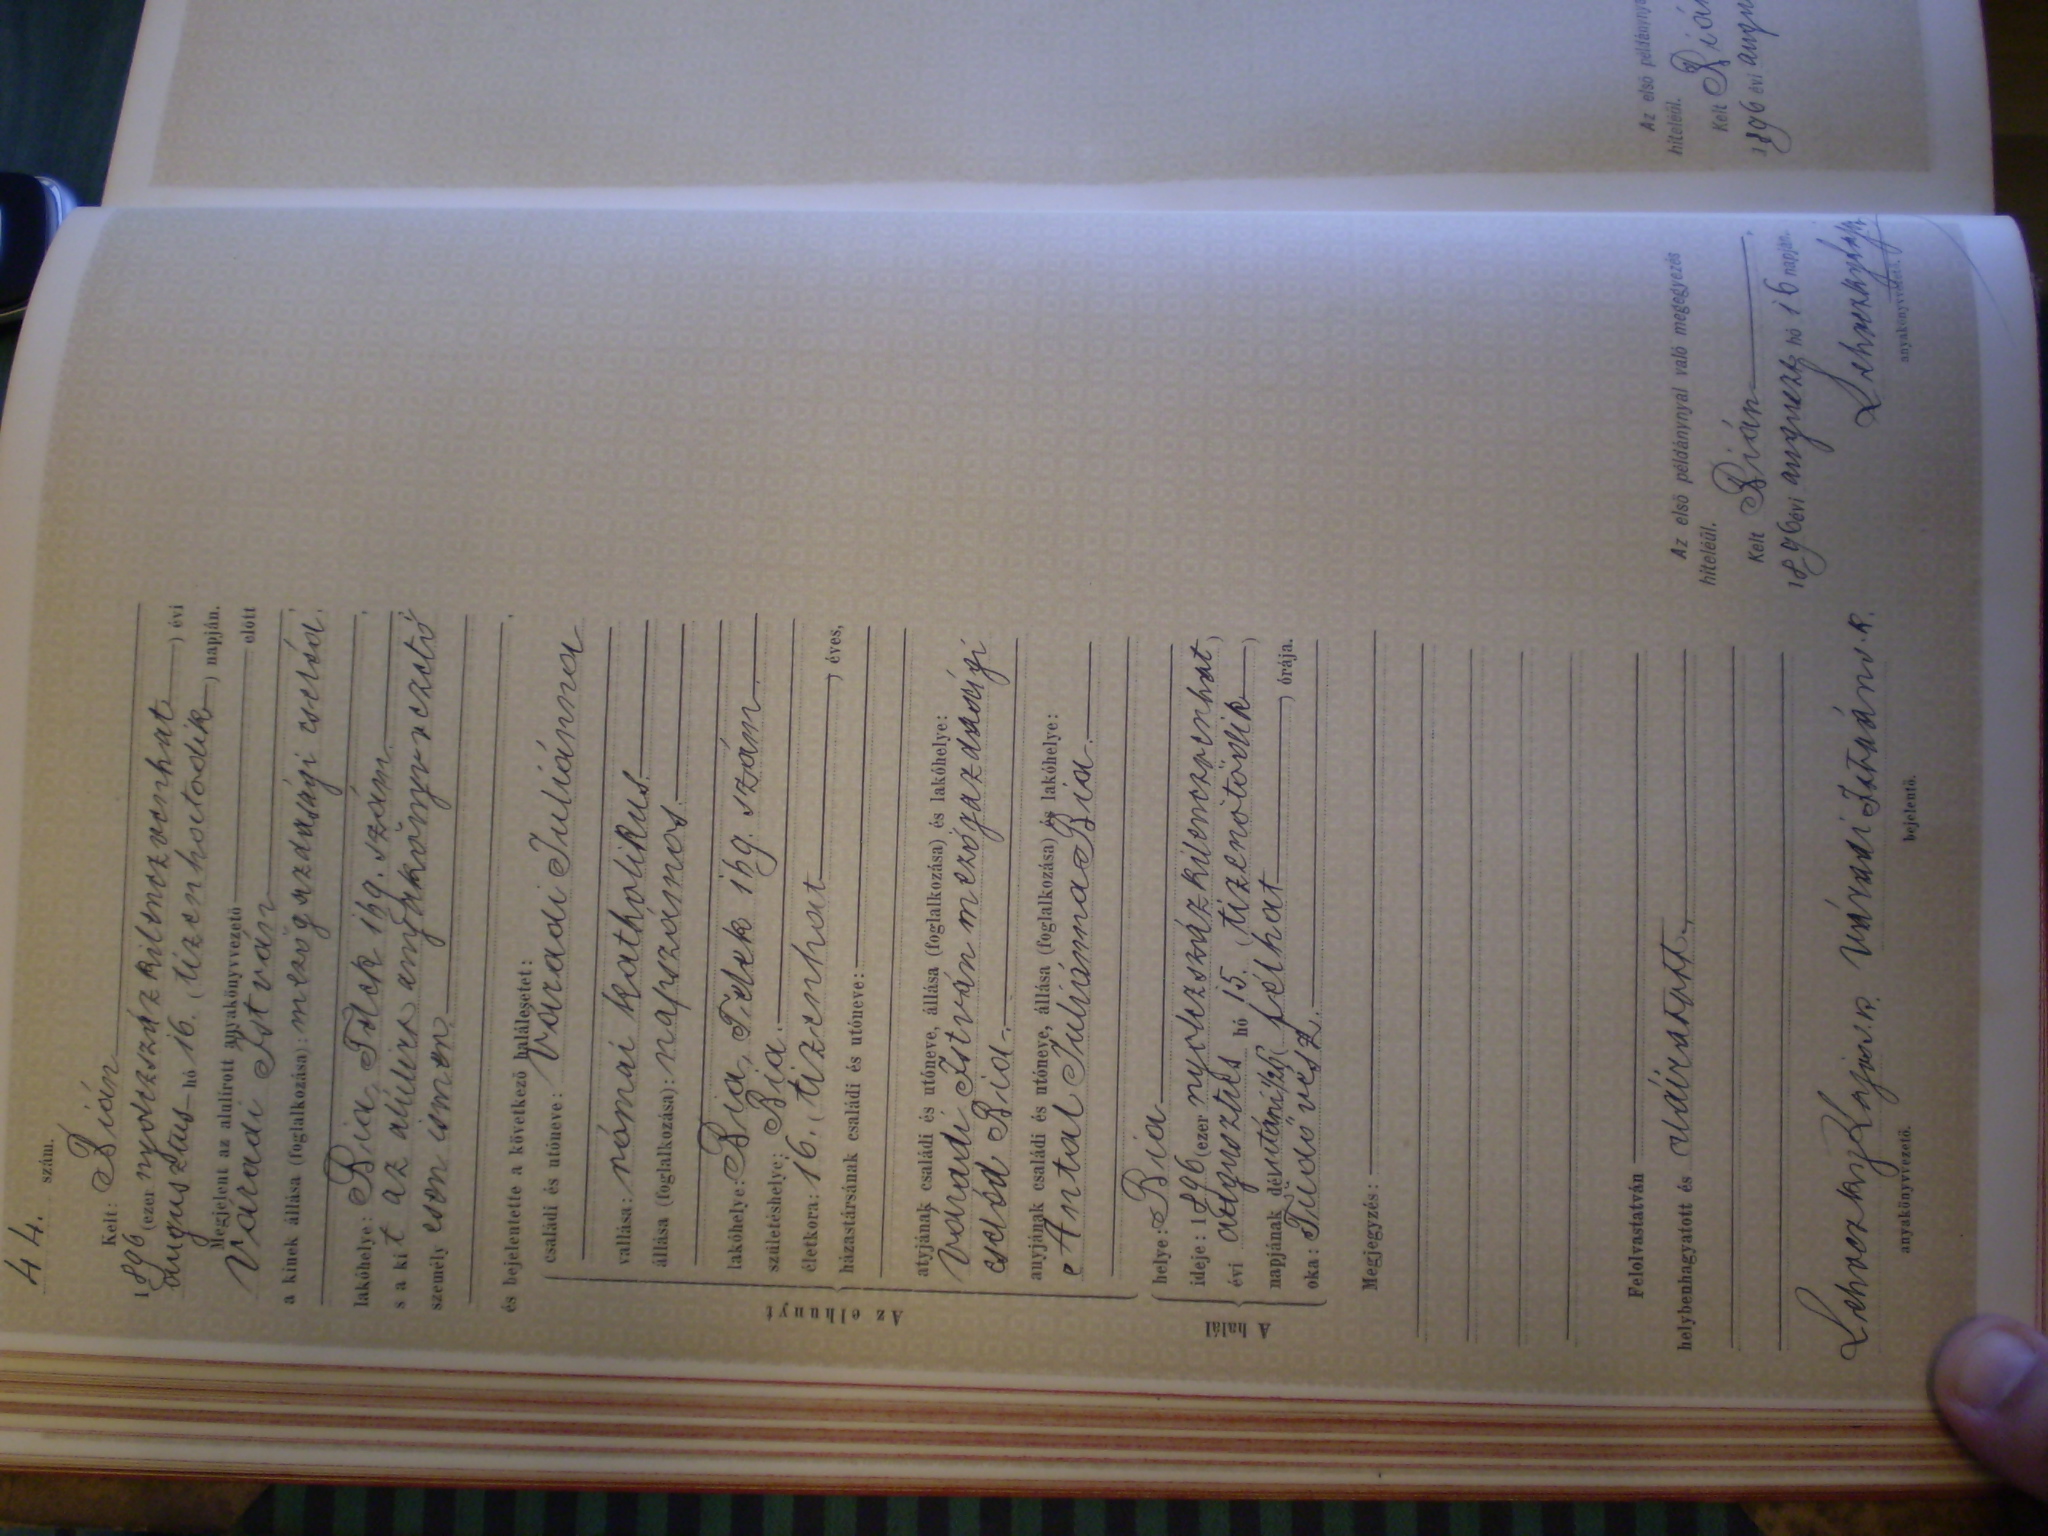 44. szám.
Kelt: Bián
1896 (ezer nyolczszáz kilenczvenhat) évi
augusztus hó 16. (tizenhatodik) napján.
Megjelent az alulírott anyakönyvvezető előtt
Váradi István
a kinek állása (foglalkozása): mezőgazdasági cseléd
lakóhelye: Bia, Telek 169. szám,
s a kit az alulírt anyakönyvvezető
személyesen ismer,
és bejelentette a következő halálesetet:
Az elhunyt
családi és utóneve: Váradi Juliánna
vallása: római katholikus
állása (foglalkozása): napszámos.
lakóhelye: Bia, Telek 169. szám.
születéshelye: Bia.
életkora: 16. (tizenhat) éves,
házastársának családi és utóneve:
atyjának családi és utóneve, állása (foglalkozása) és lakóhelye:
Váradi István mezőgazdasági
cseléd Bia.
anyjának családi és utóneve, állása (foglalkozása) és lakóhelye:
Antal Juliánna Bia.
A halál
helye: Bia
ideje: 1896 (ezer nyolczszázkilenczvenhat)
évi augusztus hó 15. (tizenötödik)
napjának délutáni félhat órája.
oka: Tüdővész.
Megjegyzés:
Felolvastatván
helybenhagyatott és aláíratott.
Lajos s. k. Váradi István s. k.
anyakönyvvezető. bejelentő.
Az első példánnyal való megegyezés
hiteléül.
Kelt Bián,
1896 évi auguszt. hó 16 napján.
anyakönyvvezető.
Az első példánnya
hiteléül.
Kelt Bián
1896 évi augu